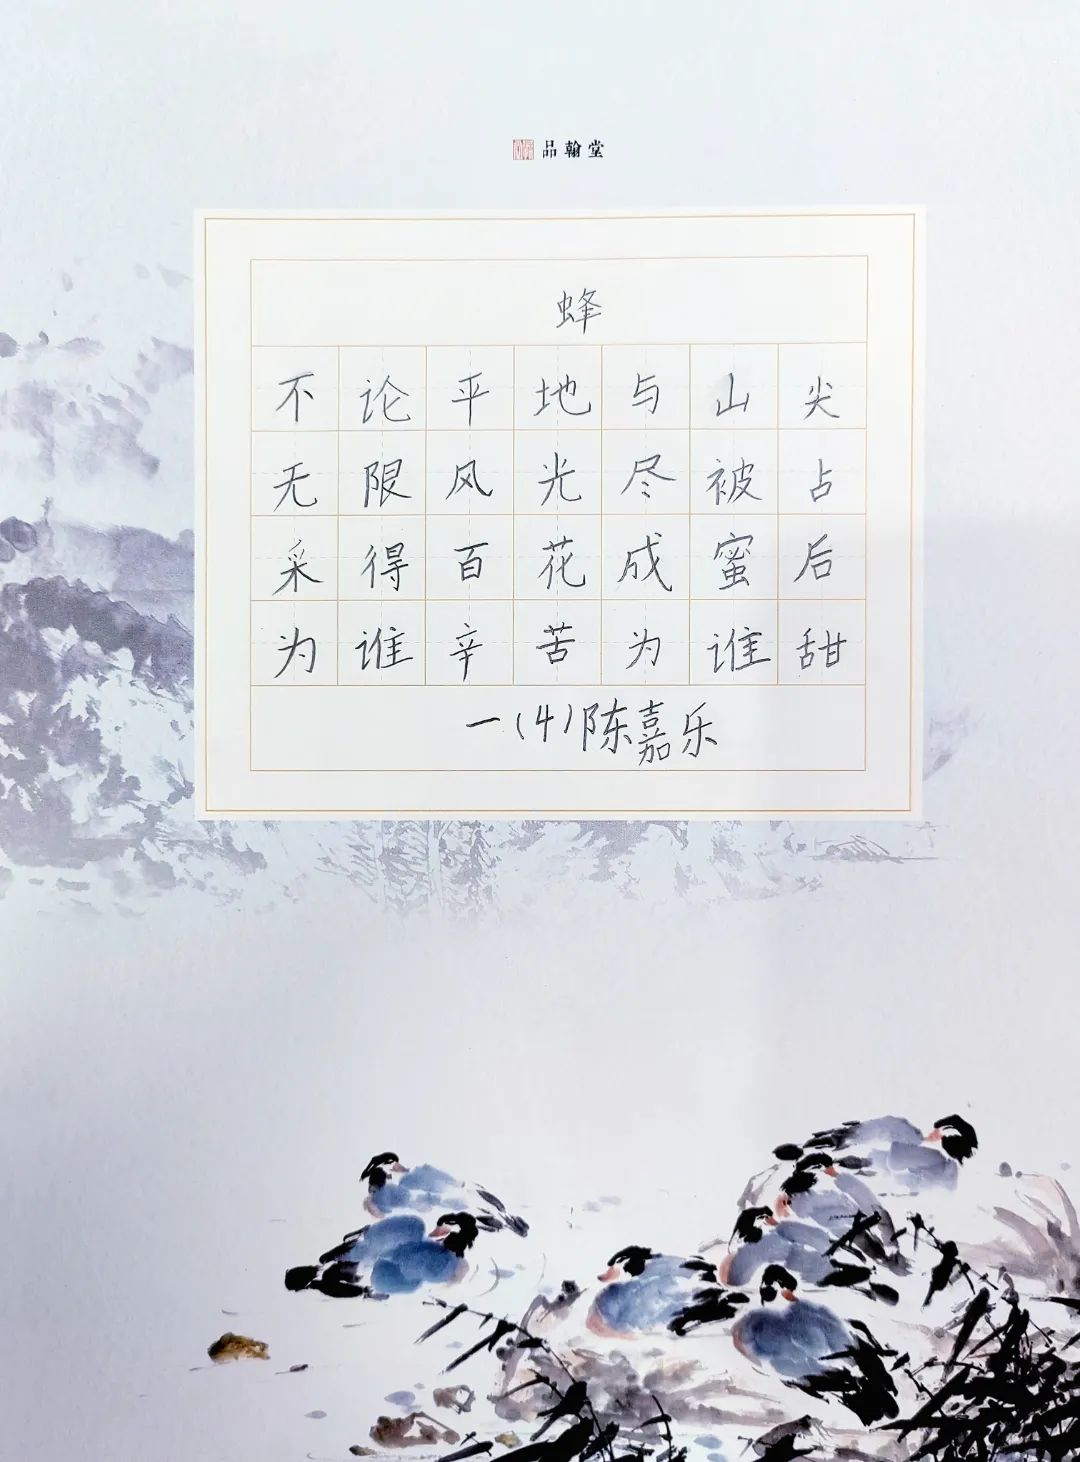 品翰堂
蜂
不论平地与山尖
无限风光尽被占
采得百花成蜜后
为谁辛苦为谁甜
一(4)陈嘉乐